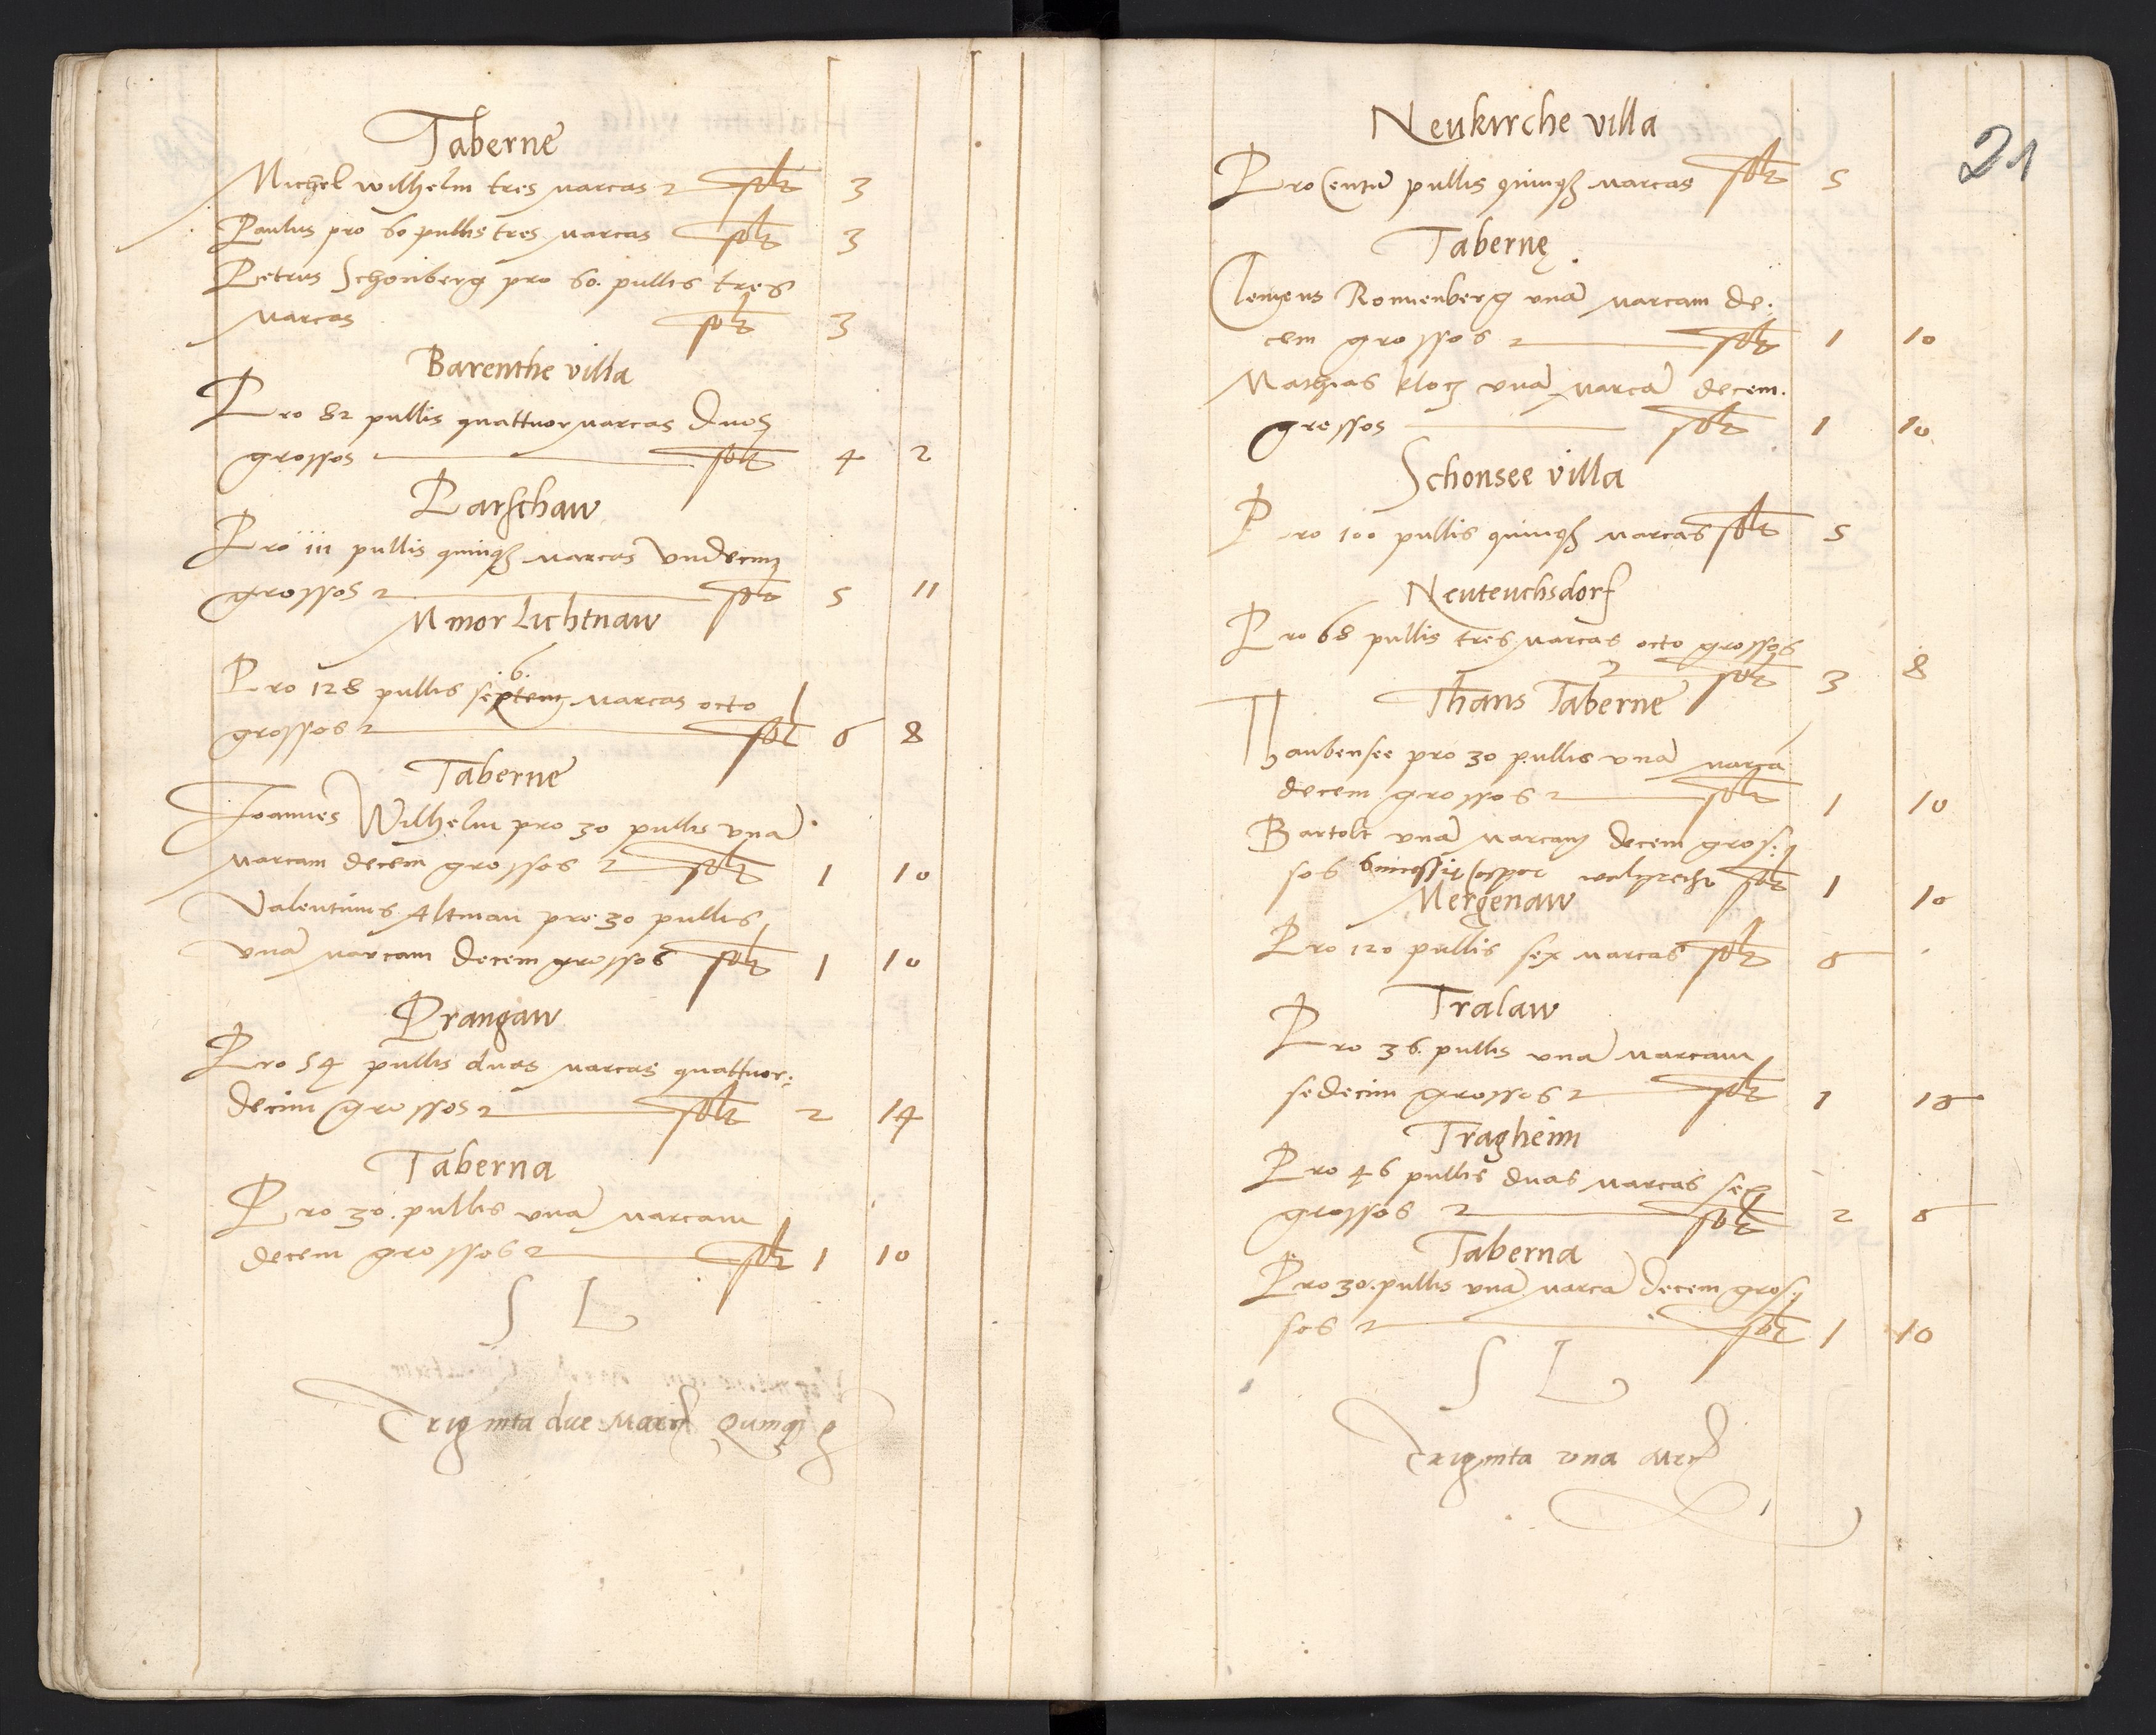 Taberne
Michel wilhelm tres marcas solt 3
Paulus pro 60 pullis tres marcas solt 3
Petrus Schonberg pro 60. pullis tres
marcas solt 3
Barenthe villa
Pro 82 pullis quattuor marcas duos
grossos solt 4 2
Parschaw
Pro 111 pullis quinqȝ marcas undecim
grossos solt 5 11
Minor Lichtnaw
.6.
Pro 128 pullis septem marcas octo
grossos sol 6 8
Taberne
Joannes Wilhelm pro 30 pullis unā
marcam decem grossos solt 1 10
Valentinus Altman pro 30 pullis
unā marcam decem grossos solt 1 10
Prangaw
Pro 54 pullis duas marcas quattuor:
decim grossos solt 2 14
Taberna
Pro 30. pullis unā marcam
decem grossos solt 1 10
S L
Triginta due marc Quinqȝ g
21
Neukirche villa
Pro Centū pullis quinqȝ marcas solt 5
Tabernę.
Clemens Ronnenberg unā marcam de:
cem grossos solt 1 10
Mathias klotz unā marcā decem.
grossos solt 1 10
Schonsee villa
Pro 100 pullis quinqȝ marcas solt 5
Neuteuchsdorf
Pro 68 pullis tres marcas octo grossos
solt 3 8
Thans Taberne
Thaubensee pro 30 pullis unā marcā
decem grossos solt 1 10
Bartolt unā marcam decem gros:
sos solt 1 10
Mergenaw
Pro 120 pullis sex marcas solt 6
Tralaw
Pro 36. pullis unā marcam
sedecim grossos solt 1 16
Tragheim
Pro 46 pullis duas marcas sex
grossos solt 2 6
Taberna
Pro 30. pullis unā marcā decem gros:
sos solt 1 10
S L
Triginta una mrc